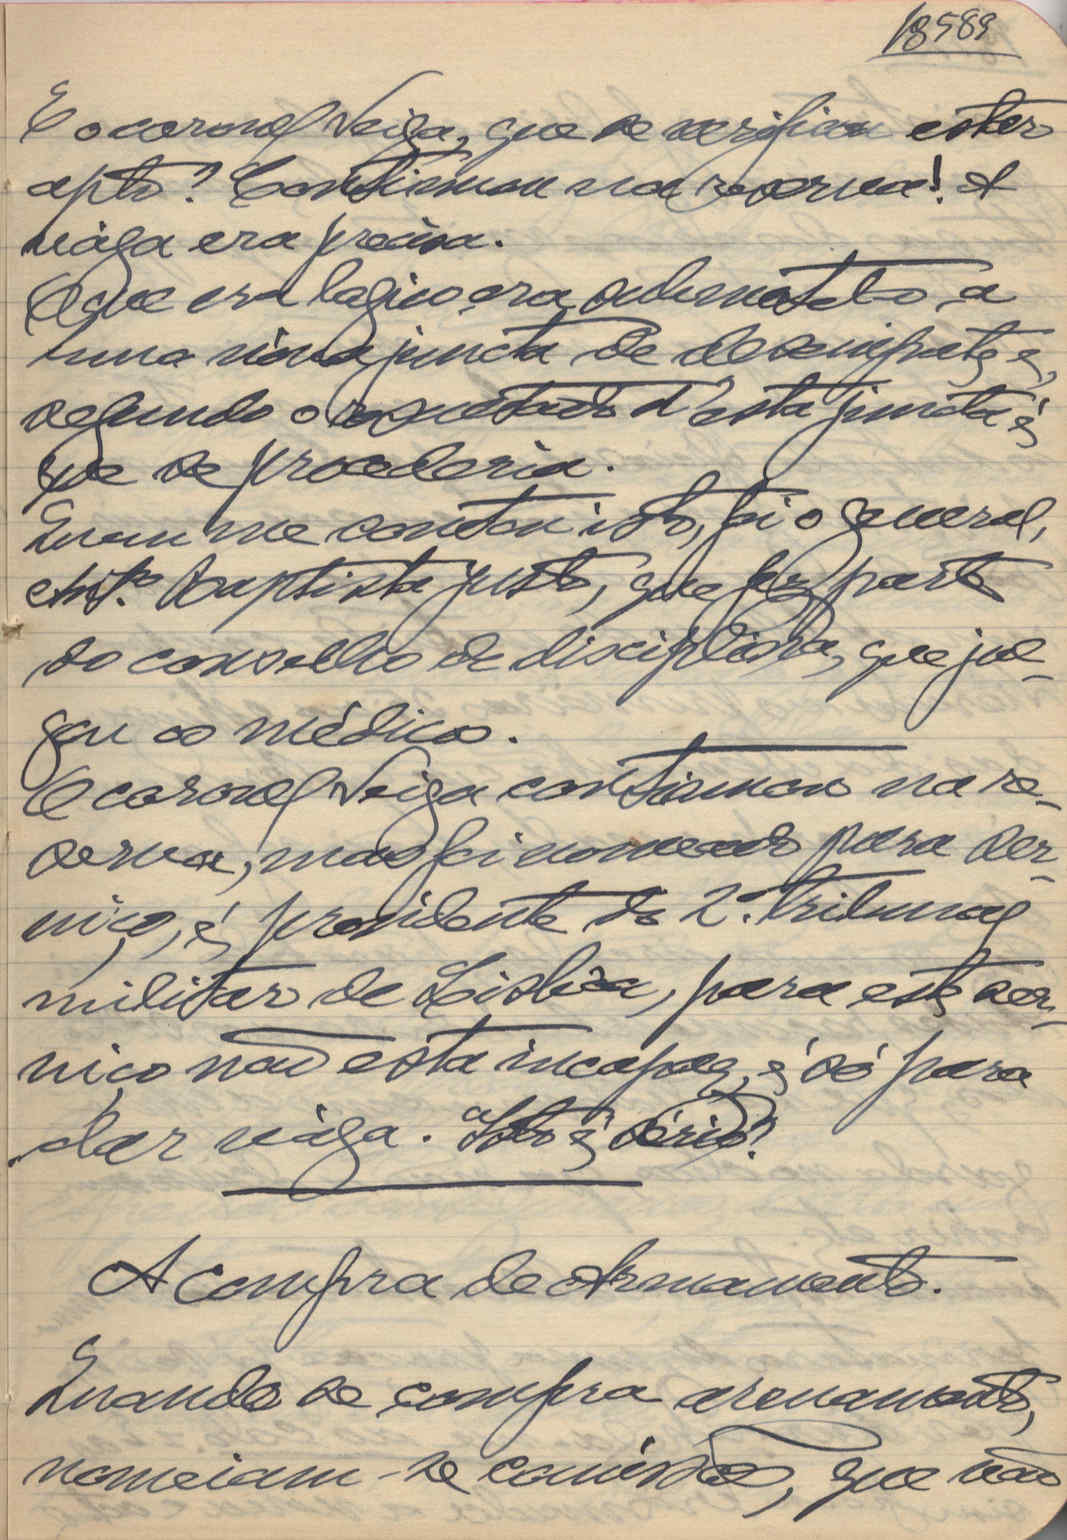 18589
E o coronel Veiga, que se verificou estar
apto? Continuou na reserva! A
vága era precisa.
O que era logico, era submetel-o a
uma nova juncta de desempate e,
segundo o resultado d'esta juncta é
que se procederia.
Quem me contou isto, foi o general,
Antº. Baptista Justo, que fez parte
do conselho de disciplina, que jul-
gou os médicos.
O coronel Veiga continuou na re-
serva, mas foi nomeado para ser-
viço, é presidente do 2º. Tribunal
militar de Lisbôa, para este ser-
viço não esta incapaz, é só para
dar vága. Isto é sério?
A compra de Armamento.
Quando se compra armamento,
nomeiam-se comissões, que vão